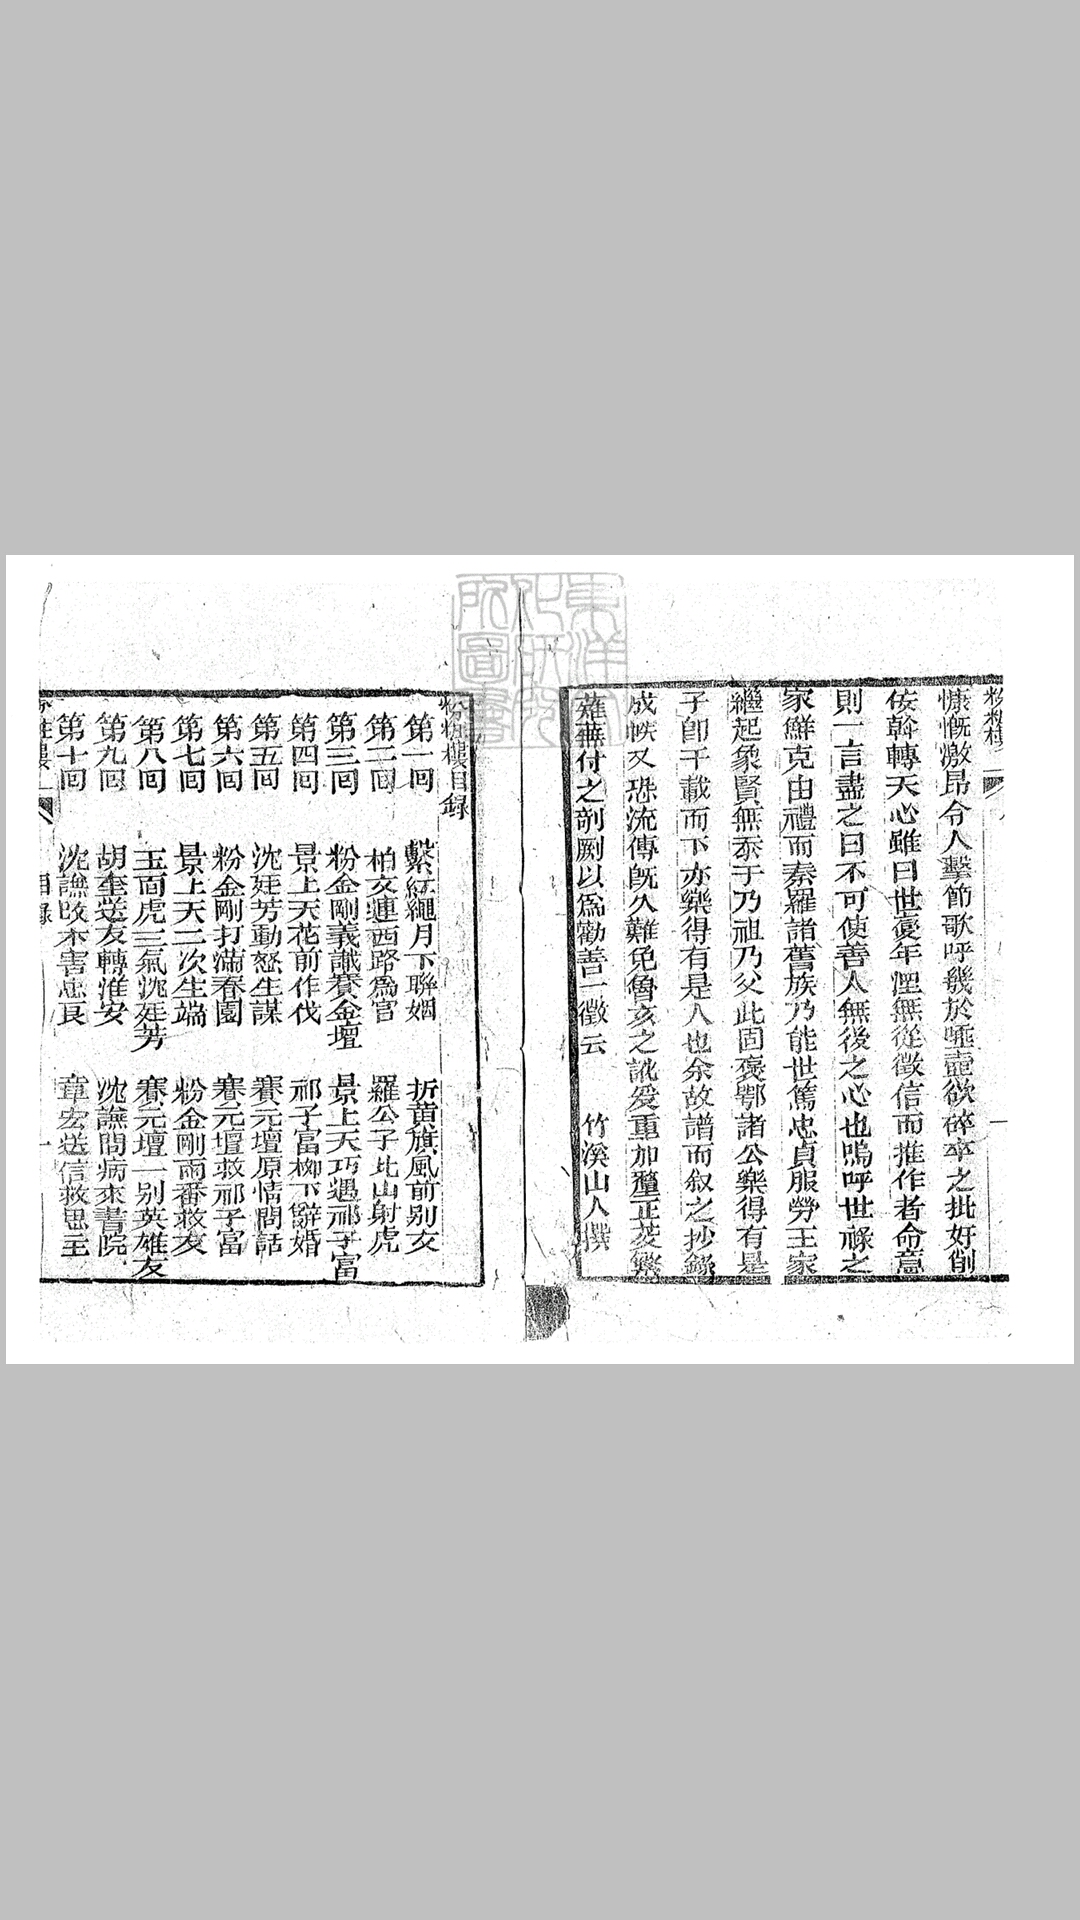 粉粧樓
慷慨激昂令人擊節歌呼幾於唾壺欲碎卒之批奸削
佞斡轉天心雖曰世寠年湮無從徵信而推作者命意
則一言盡之曰不可使善人無後之心也嗚呼世祿之
家鮮克由禮而秦羅諸舊族乃能世篤忠貞服勞王家
繼起象賢無忝于乃祖乃父此固褒鄂諸公樂得有是
子卽千載而下亦樂得有是人也余故譜而叙之抄錄
成帙又恐流傳旣久難免魯亥之訛爰重加釐正芟繁
薙蕪付之剞劂以爲勸善一徵云 竹溪山人撰
粉粧樓目錄
第一回 繫紅繩月下聯姻 折黃旗風前別友
第二回 柏文連西路爲官 羅公子北山射虎
第三回 粉金剛義識賽金壇 景上天巧遇祁子富
第四回 景上天花前作伐 祁子富柳下辭婚
第五回 沈廷芳動怒生謀 賽元壇原情問話
第六回 粉金剛打滿春園 賽元壇救祁子富
第七回 景上天二次生端 粉金剛兩番救友
第八回 玉面虎三氣沈廷芳 賽元壇一別英雄友
第九回 胡奎送友轉淮安 沈謙問病來書院
第十回 沈謙改本害忠良 章宏送信救恩主
粧樓 目錄 一